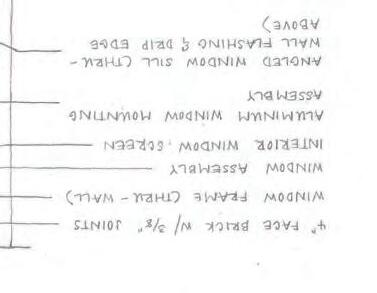 4" FACE BRICK W/ 3/8" JOINTS
WINDOW FRAME (THRU-WALL)
WINDOW ASSEMBLY
INTERIOR WINDOW SCREEN
ALUMINUM WINDOW MOUNTING
ASSEMBLY
ANGLED WINDOW SILL (THRU-
WALL FLASHING & DRIP EDGE
ABOVE)